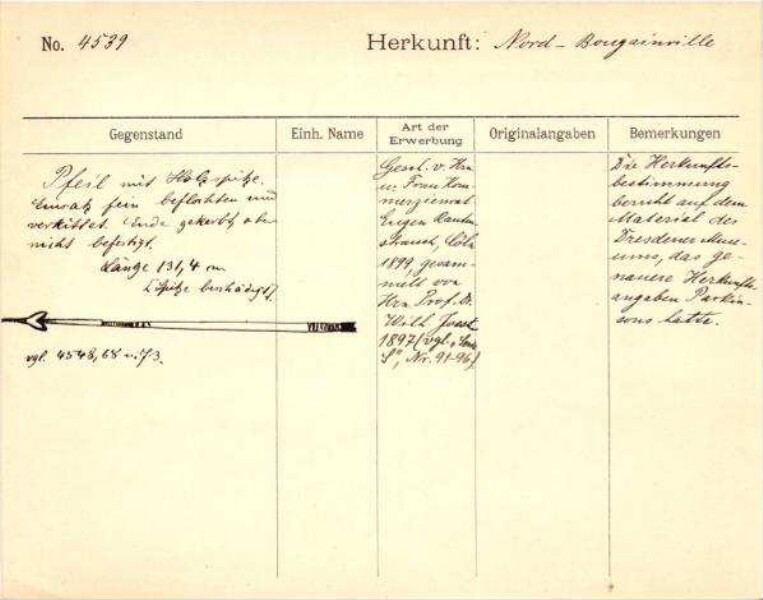 No. 4539
Herkunft: Nord-Bougainville
Gegenstand
Einh. Name
Art der
Erwerbung
Originalangaben
Bemerkungen
Pfeil mit Holzspitze.
Einsatz fein beflochten und
verkittet. Ende gekerbt aber
nicht befestigt.
Länge 131,4 cm
(Spitze beschädigt)
vgl. 4548, 68 u. 73.
Gesch. v. Hrn
u. Frau Kom-
merzienrat
Eugen Rauten-
strauch, Cöln
1899, gesam-
melt von
Hrn Prof. Dr.
Wilh. Joest
1897 (vgl.
S", Nr. 91-96).
Die Herkunfts-
bestimmung
beruht auf dem
Material des
Dresdener Muse-
ums, das ge-
nauere Herkunfts-
angaben Parkin-
sons hatte.